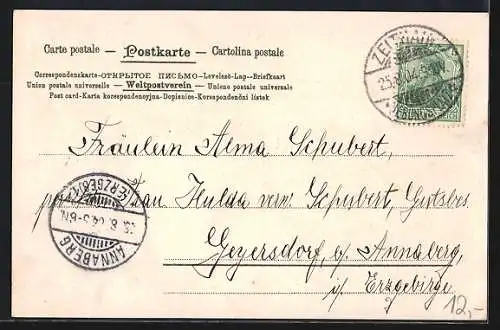 Carte postale — Postkarte — Cartolina postale
Correspondenzkarte-ОТКРЫТОЕ ПИСЬМО-Levelező-Lap-Briefkaart
Union postale universelle — Weltpostverein — Unione postale universale
Post card-Karta korespondencyjna-Dopisnice-Korespondenční lístek
ZEITHAIN
25.8.04
Fräulein Alma Schubert,
Frau Hulda verw. Schubert, Gutsbes.
Geyersdorf b/ Annaberg,
i/ Erzgebirge.
ANNABERG
(ERZGEB.)
8.04. 5-6N.
12,-